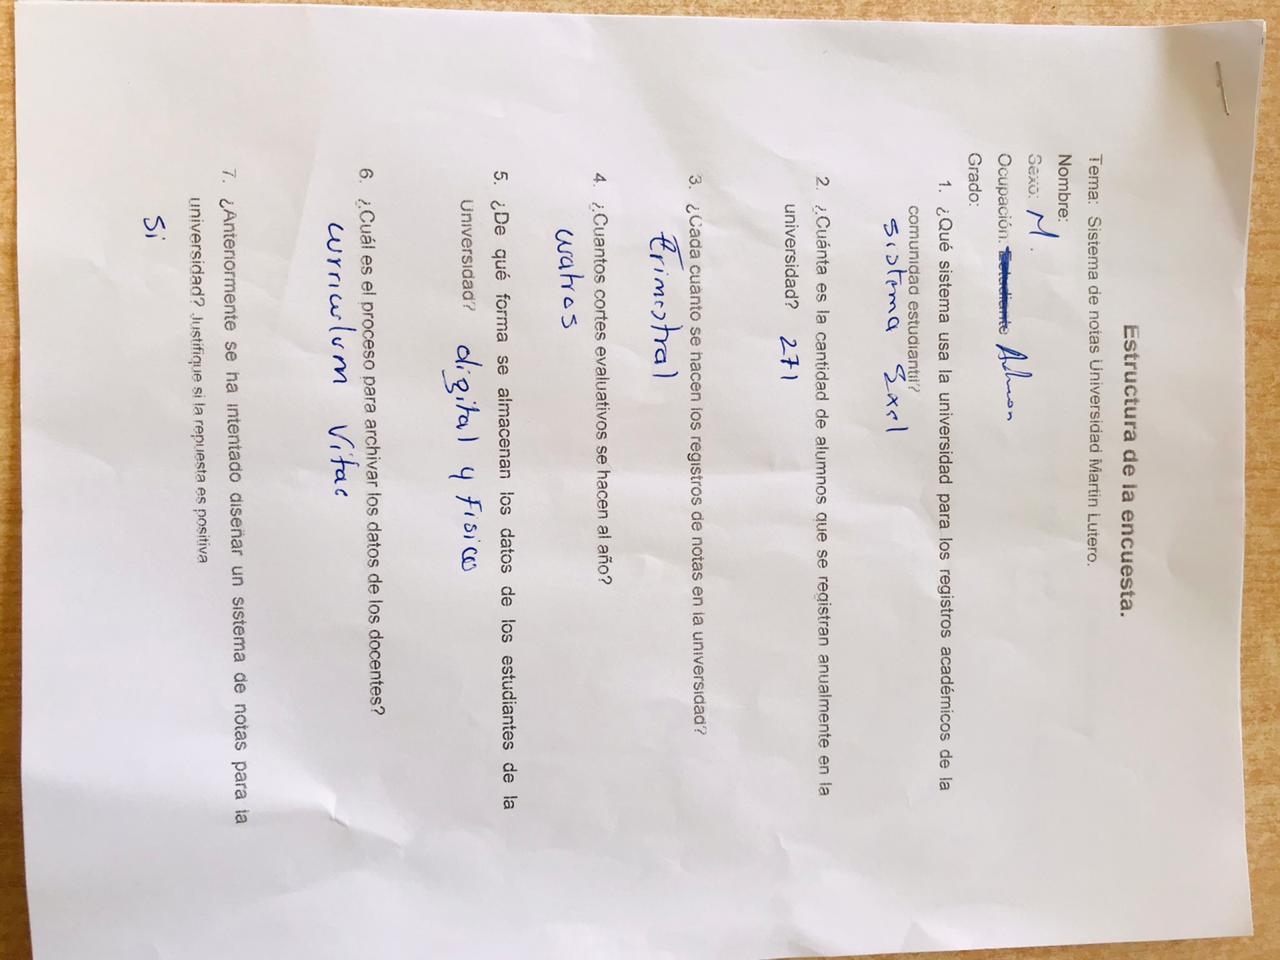 Estructura de la encuesta.
Tema: Sistema de notas Universidad Martin Lutero.
Nombre:
Sexo: M.
Ocupación: Estudiante Admon
Grado:
1. ¿Qué sistema usa la universidad para los registros académicos de la
comunidad estudiantil?
sistema Exel
2. ¿Cuánta es la cantidad de alumnos que se registran anualmente en la
universidad? 271
3. ¿Cada cuanto se hacen los registros de notas en la universidad?
trimestral
4. ¿Cuantos cortes evaluativos se hacen al año?
cuatros
5. ¿De qué forma se almacenan los datos de los estudiantes de la
Universidad? digital y Fisico
6. ¿Cuál es el proceso para archivar los datos de los docentes?
curriculum Vitae
7. ¿Anteriormente se ha intentado diseñar un sistema de notas para la
universidad? Justifique si la repuesta es positiva
Si